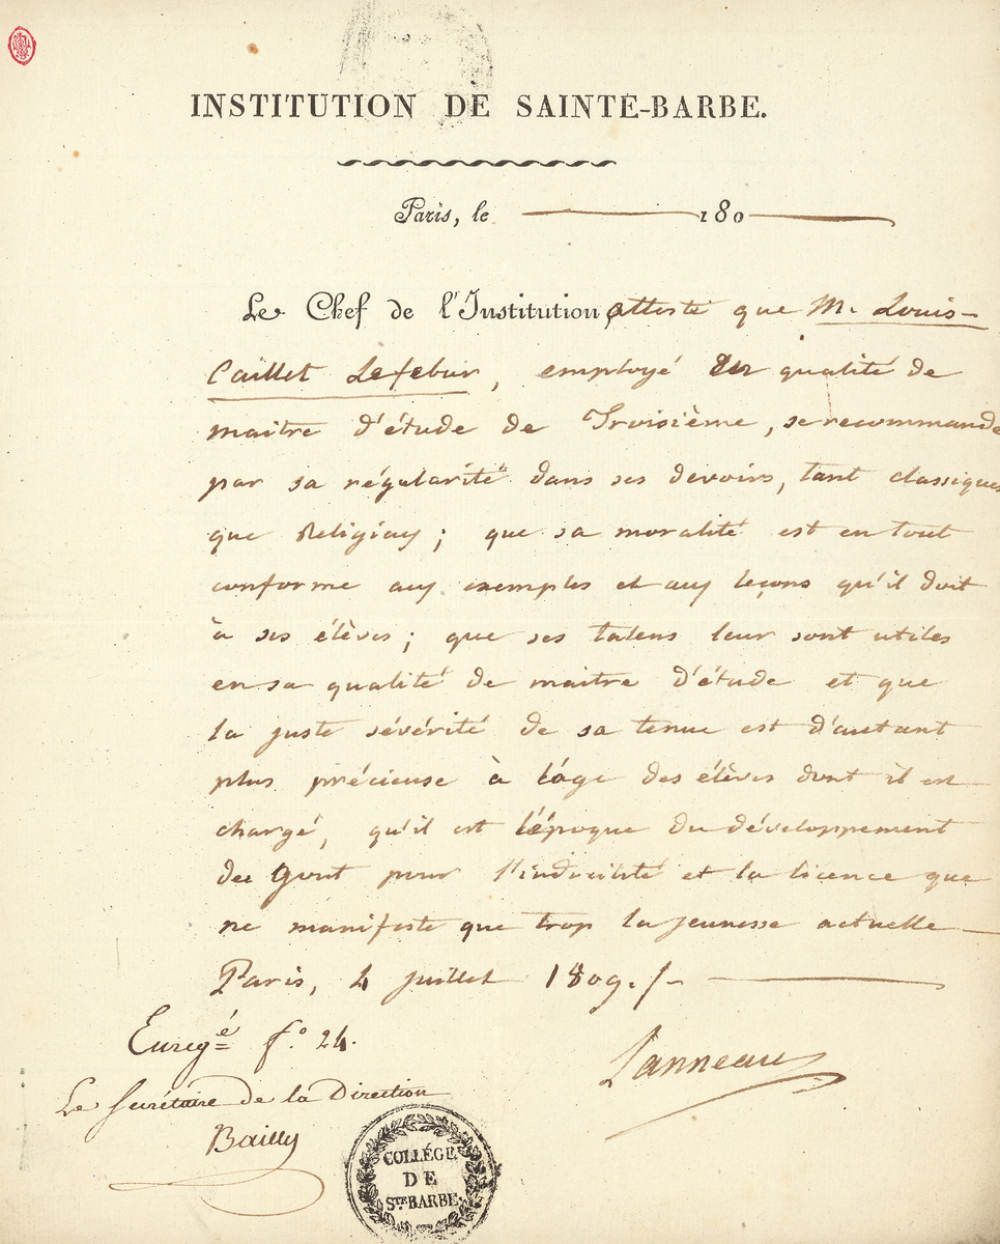 INSTITUTION DE SAINTE-BARBE.
Paris, le 180
Le Chef de l'Institution, atteste que M. Louis-
Caillet Lefebur, employé en qualité de
maitre d'étude de Troisième, se recommande
par sa régularité dans ses devoirs, tant classiques
que Religieux; que sa moralité est en tout
conforme aux exemples et aux leçons qu'il doit
à ses élèves; que ses talens leur sont utiles
en sa qualité de maitre d'étude et que
la juste sévérité de sa tenue est d'autant
plus précieuse à l'âge des élèves dont il est
chargé, qu'il est l'époque du développement
du Gout pour l'indocilité et la licence que
ne manifeste que trop la jeunesse actuelle
Paris, 4 juillet 1809./-
Enregé f.o 24.
Lanneau
Le Secrétaire de la Direction
Bailly
COLLÉGE
DE
STE BARBE